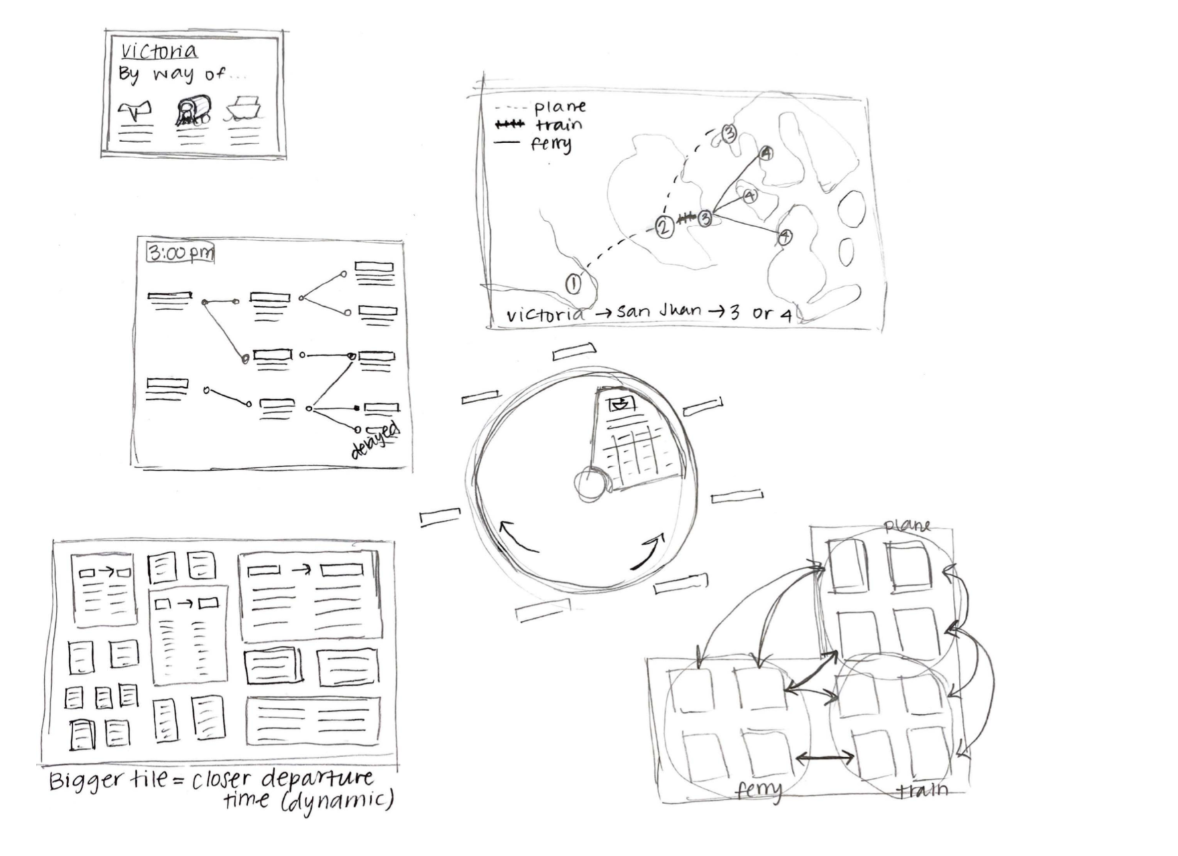 Victoria
By way of...
plane
train
ferry
3
4
4
2
3
4
1
victoria → san Juan → 3 or 4
3:00 pm
delayed
Bigger tile = closer departure
time (dynamic)
plane
ferry
train